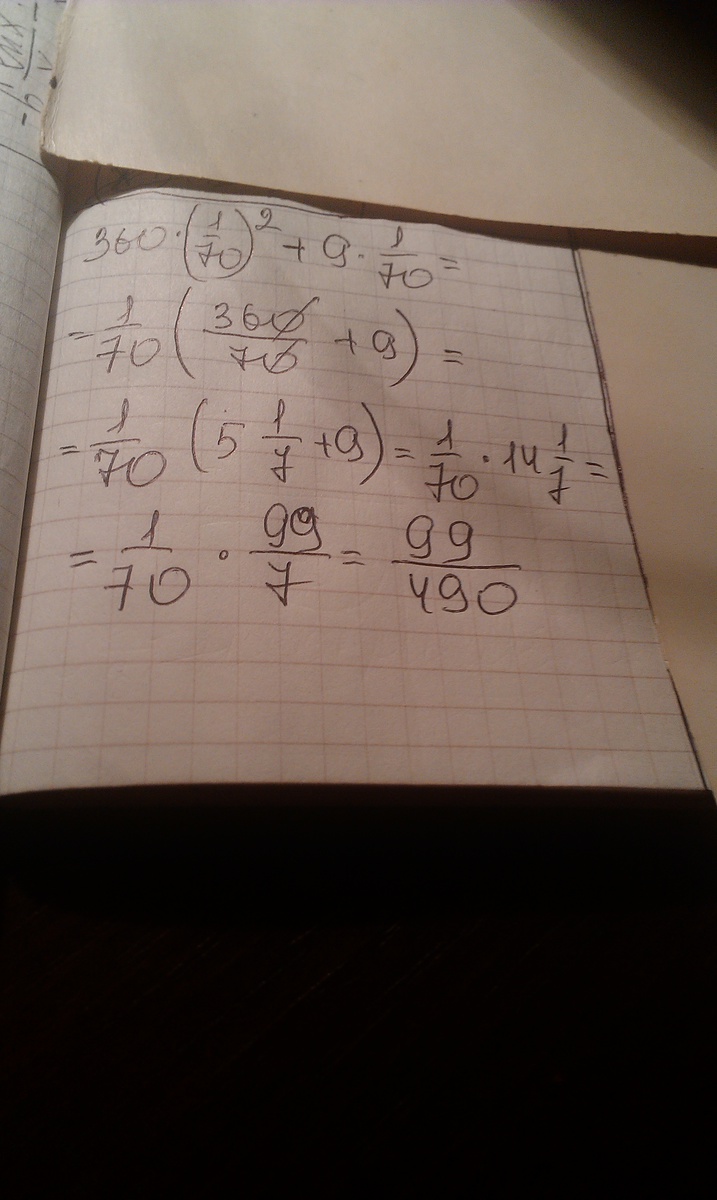 360·(1/70)² + 9·1/70 =
= 1/70 (360/70 + 9) =
= 1/70 (5 1/7 + 9) = 1/70 · 14 1/7 =
= 1/70 · 99/7 = 99/490